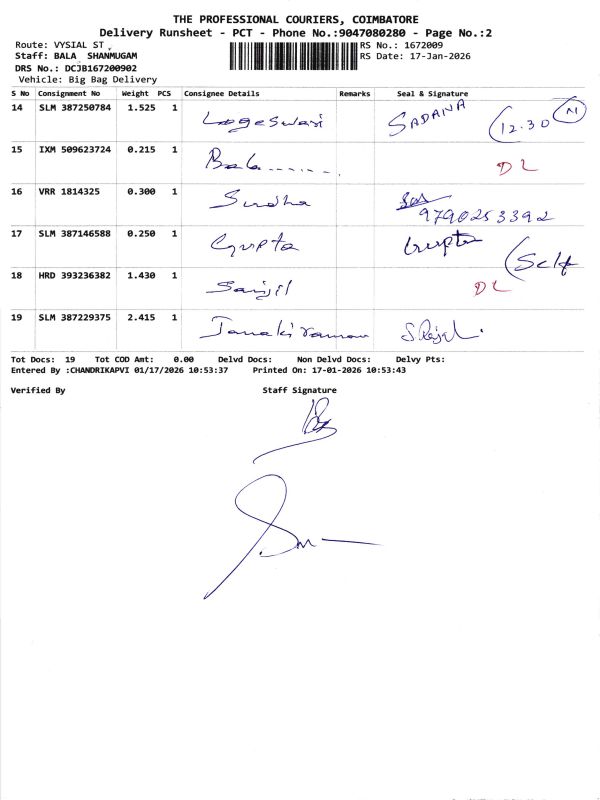 THE PROFESSIONAL COURIERS, COIMBATORE
Delivery Runsheet - PCT - Phone No.:9047080280 - Page No.:2
Route: VYSIAL ST , RS No.: 1672009
Staff: BALA SHANMUGAM RS Date: 17-Jan-2026
DRS No.: DCJB167200902
Vehicle: Big Bag Delivery
S No Consignment No Weight PCS Consignee Details Remarks Seal & Signature
14 SLM 387250784 1.525 1 Logeswari SADANA 12.30 N
15 IXM 509623724 0.215 1 Bala....... DL
16 VRR 1814325 0.300 1 Sudha
9790253392
17 SLM 387146588 0.250 1 Gupta Gupta
(Self
18 HRD 393236382 1.430 1 DL
19 SLM 387229375 2.415 1 Janakiraman
Tot Docs: 19 Tot COD Amt: 0.00 Delvd Docs: Non Delvd Docs: Delvy Pts:
Entered By :CHANDRIKAPVI 01/17/2026 10:53:37 Printed On: 17-01-2026 10:53:43
Verified By Staff Signature